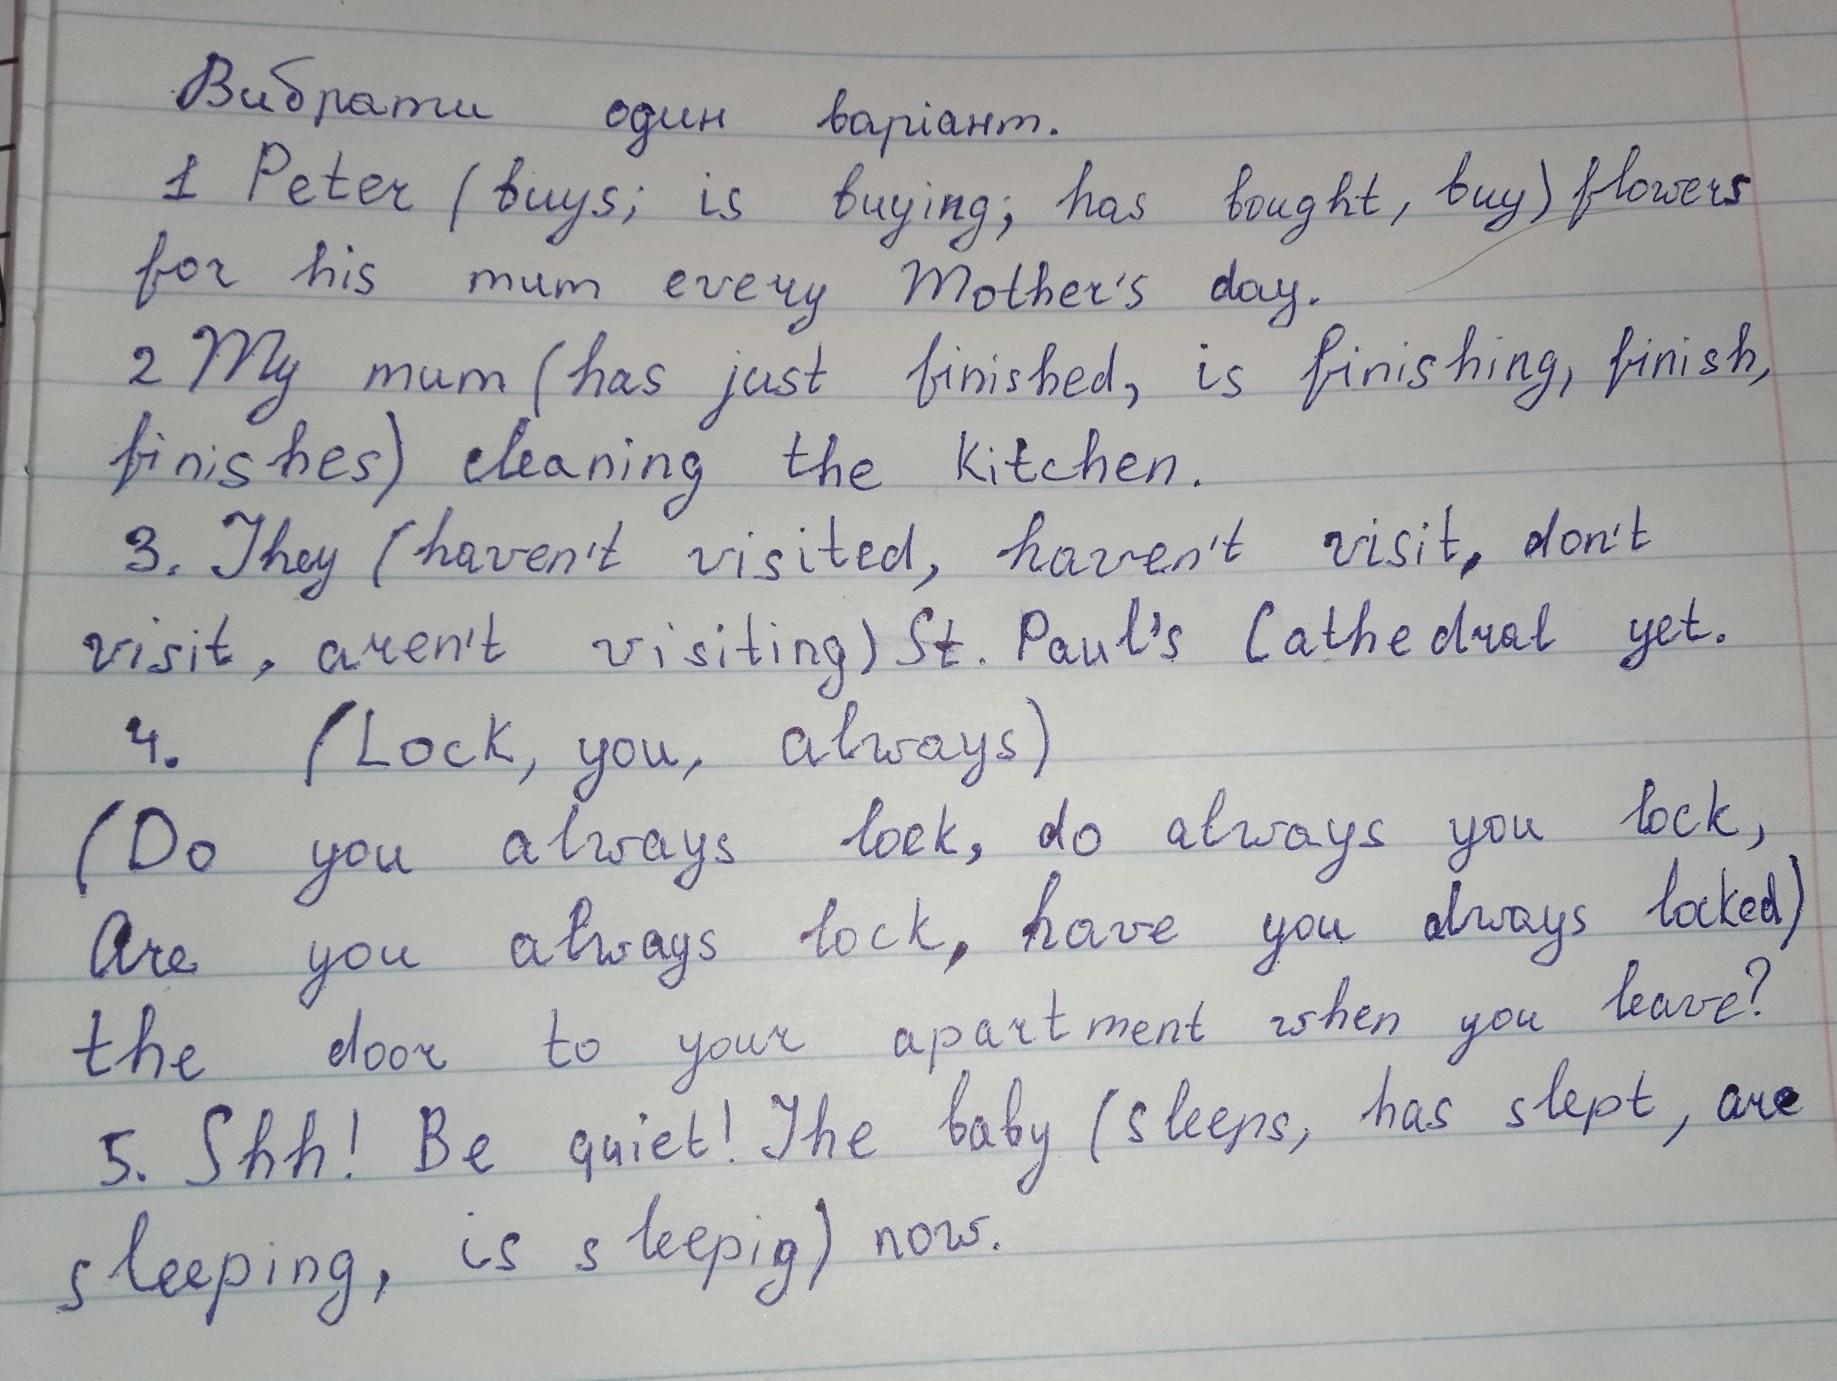 Вибрати один варіант.
1 Peter (buys; is buying; has bought, buy) flowers
for his mum every Mother's day.
2 My mum (has just finished, is finishing, finish,
finishes) cleaning the kitchen.
3. They (haven't visited, haven't visit, don't
visit, aren't visiting) St. Paul's Cathedral yet.
4. (Lock, you, always)
(Do you always lock, do always you lock,
Are you always lock, have you always locked)
the door to your apartment when you leave?
5. Shh! Be quiet! The baby (sleeps, has slept, are
sleeping, is sleepig) now.